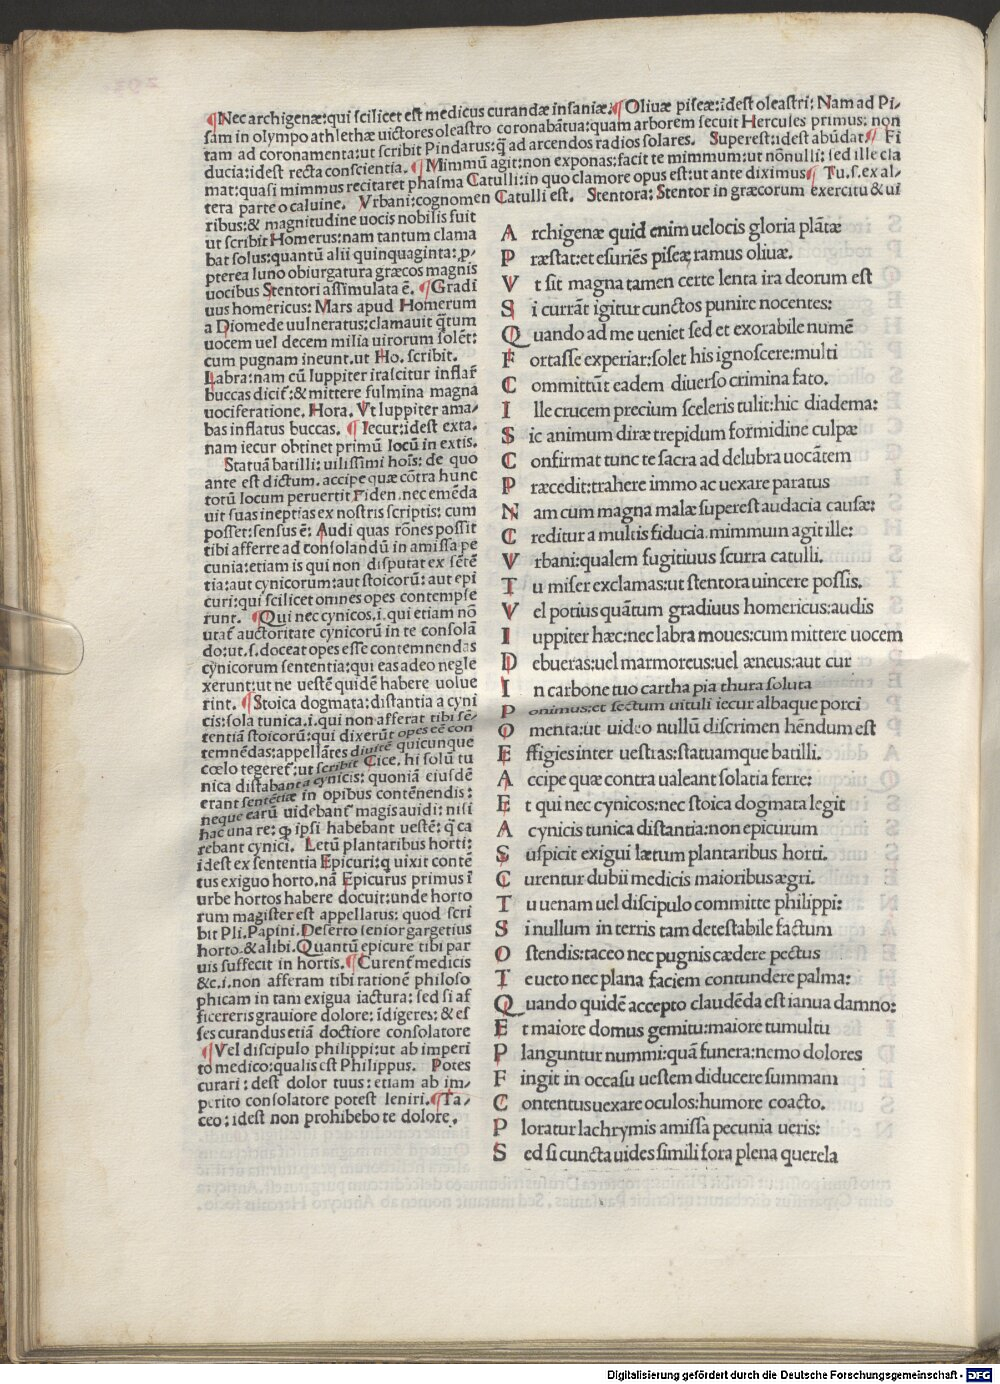 ¶Nec archigenæ:qui scilicet est medicus curandæ insaniæ.¶Oliuæ piseæ:idest oleastri: Nam ad Pi-
sam in olympo athlethæ uictores oleastro coronabãtua:quam arborem secuit Hercules primus: non
tam ad coronamenta:ut scribit Pindarus:q̃ ad arcendos radios solares. Superest:idest abũdat.¶ Fi
ducia:idest recta conscientia. ¶Mimmũ agit:non exponas:facit te mimmum:ut nõnulli: sed ille cla
mat:quasi mimmus recitaret phasma Catulli:in quo clamore opus est:ut ante diximus¶ Tu.s.ex al-
tera parte o caluine. Vrbani:cognomen Catulli est. Stentora: Stentor in græcorum exercitu & ui
ribus:& magnitudine uocis nobilis fuit
ut scribit Homerus:nam tantum clama
bat solus:quantũ alii quinquaginta: ꝓ-
pterea Iuno obiurgatura græcos magnis
uocibus Stentori assimulata ẽ. ¶Gradi
uus homericus: Mars apud Homerum
a Diomede uulneratus:clamauit q̃tum
uocem uel decem milia uirorum solẽt:
cum pugnam ineunt.ut Ho. scribit.
Labra:nam cũ Iuppiter irascitur inflar̃
buccas dicit̃:& mittere fulmina magna
uociferatione. Hora. Vt Iuppiter ama-
bas inflatus buccas. ¶Iecur:idest exta.
nam iecur obtinet primũ locũ in extis.
Statuã batilli: uilissimi hoĩs: de quo
ante est dictum. accipe quæ cõtra hunc
totũ locum peruertit Fiden. nec emẽda
uit suas ineptias ex nostris scriptis: cum
posset:sensus ẽ: Audi quas rõnes possit
tibi afferre ad consolandũ in amissa pe
cunia:etiam is qui non disputat ex sẽtẽ
tia:aut cynicorum:aut stoicorũ: aut epi
curi:qui scilicet omnes opes contempse
runt. ¶Qui nec cynicos.i. qui etiam nõ
utat̃ auctoritate cynicorũ in te consolã
do:ut.s.doceat opes esse contemnendas
cynicorum sententia:qui eas adeo negle
xerunt:ut ne uestẽ quidẽ habere uolue
rint. ¶Stoica dogmata:distantia a cyni
cis:sola tunica.i.qui non afferat tibi sẽ-
tentiã stoicorũ:qui dixerũt opes eẽ con
temnẽdas:appellãtes diuitẽ quicunque
cœlo tegeret̃:ut scribit Cice. hi solũ tu
nica distabanta cynicis: quoniã eiusdẽ
erant sententiæ in opibus contẽnendis:
neque earũ uidebant̃ magis auidi: nisi
hac una re: ꝙ ipsi habebant uestẽ: q̃ ca
rebant cynici. Letũ plantaribus horti:
idest ex sententia Epicuri:q uixit contẽ
tus exiguo horto.nã Epicurus primus ĩ
urbe hortos habere docuit:unde horto
rum magister est appellatus: quod scri
bit Pli. Papini. Deserto senior gargetius
horto.& alibi.Quantũ epicure tibi par
uis suffecit in hortis. ¶Curent̃ medicis
&c.i.non afferam tibi rationẽ philoso
phicam in tam exigua iactura: sed si af
ficereris grauiore dolore: ĩdigeres: & es
ses curandus etiã doctiore consolatore
¶Vel discipulo philippi:ut ab imperi
to medico:qualis est Philippus. Potes
curari: dest dolor tuus: etiam ab im-
perito consolatore potest leniri.¶Ta-
ceo: idest non prohibebo te dolore.
A rchigenæ quid enim uelocis gloria plãtæ
P ræstat:et esuriẽs piseæ ramus oliuæ.
V t sit magna tamen certe lenta ira deorum est
S i currãt igitur cunctos punire nocentes:
Q uando ad me ueniet sed et exorabile numẽ
F ortasse experiar:solet his ignoscere:multi
C ommittũt eadem diuerso crimina fato.
I lle crucem precium sceleris tulit:hic diadema:
S ic animum diræ trepidum formidine culpæ
C onfirmat tunc te sacra ad delubra uocãtem
P ræcedit:trahere immo ac uexare paratus
N am cum magna malæ superest audacia causæ:
C reditur a multis fiducia.mimmum agit ille:
V rbani:qualem fugitiuus scurra catulli.
T u miser exclamas:ut stentora uincere possis.
V el potius quãtum gradiuus homericus:audis
I uppiter hæc:nec labra moues:cum mittere uocem
D ebueras:uel marmoreus:uel æneus:aut cur
I n carbone tuo cartha pia thura soluta
P onimus:et sectum uituli iecur albaque porci
O menta:ut uideo nullũ discrimen hẽndum est
E ffigies inter uestras:statuamque batilli.
A ccipe quæ contra ualeant solatia ferre:
E t qui nec cynicos:nec stoica dogmata legit
A cynicis tunica distantia:non epicurum
S uspicit exigui lætum plantaribus horti.
C urentur dubii medicis maioribus ægri.
T u uenam uel discipulo committe philippi:
S i nullum in terris tam detestabile factum
O stendis:taceo nec pugnis cædere pectus
T e ueto nec plana faciem contundere palma:
Q uando quidẽ accepto claudẽda est ianua damno:
E t maiore domus gemitu:maiore tumultu
P languntur nummi:quã funera:nemo dolores
F ingit in occasu uestem diducere summam
C ontentus uexare oculos:humore coacto.
P loratur lachrymis amissa pecunia ueris:
S ed si cuncta uides simili fora plena querela
Digitalisierung gefördert durch die Deutsche Forschungsgemeinschaft - DFG